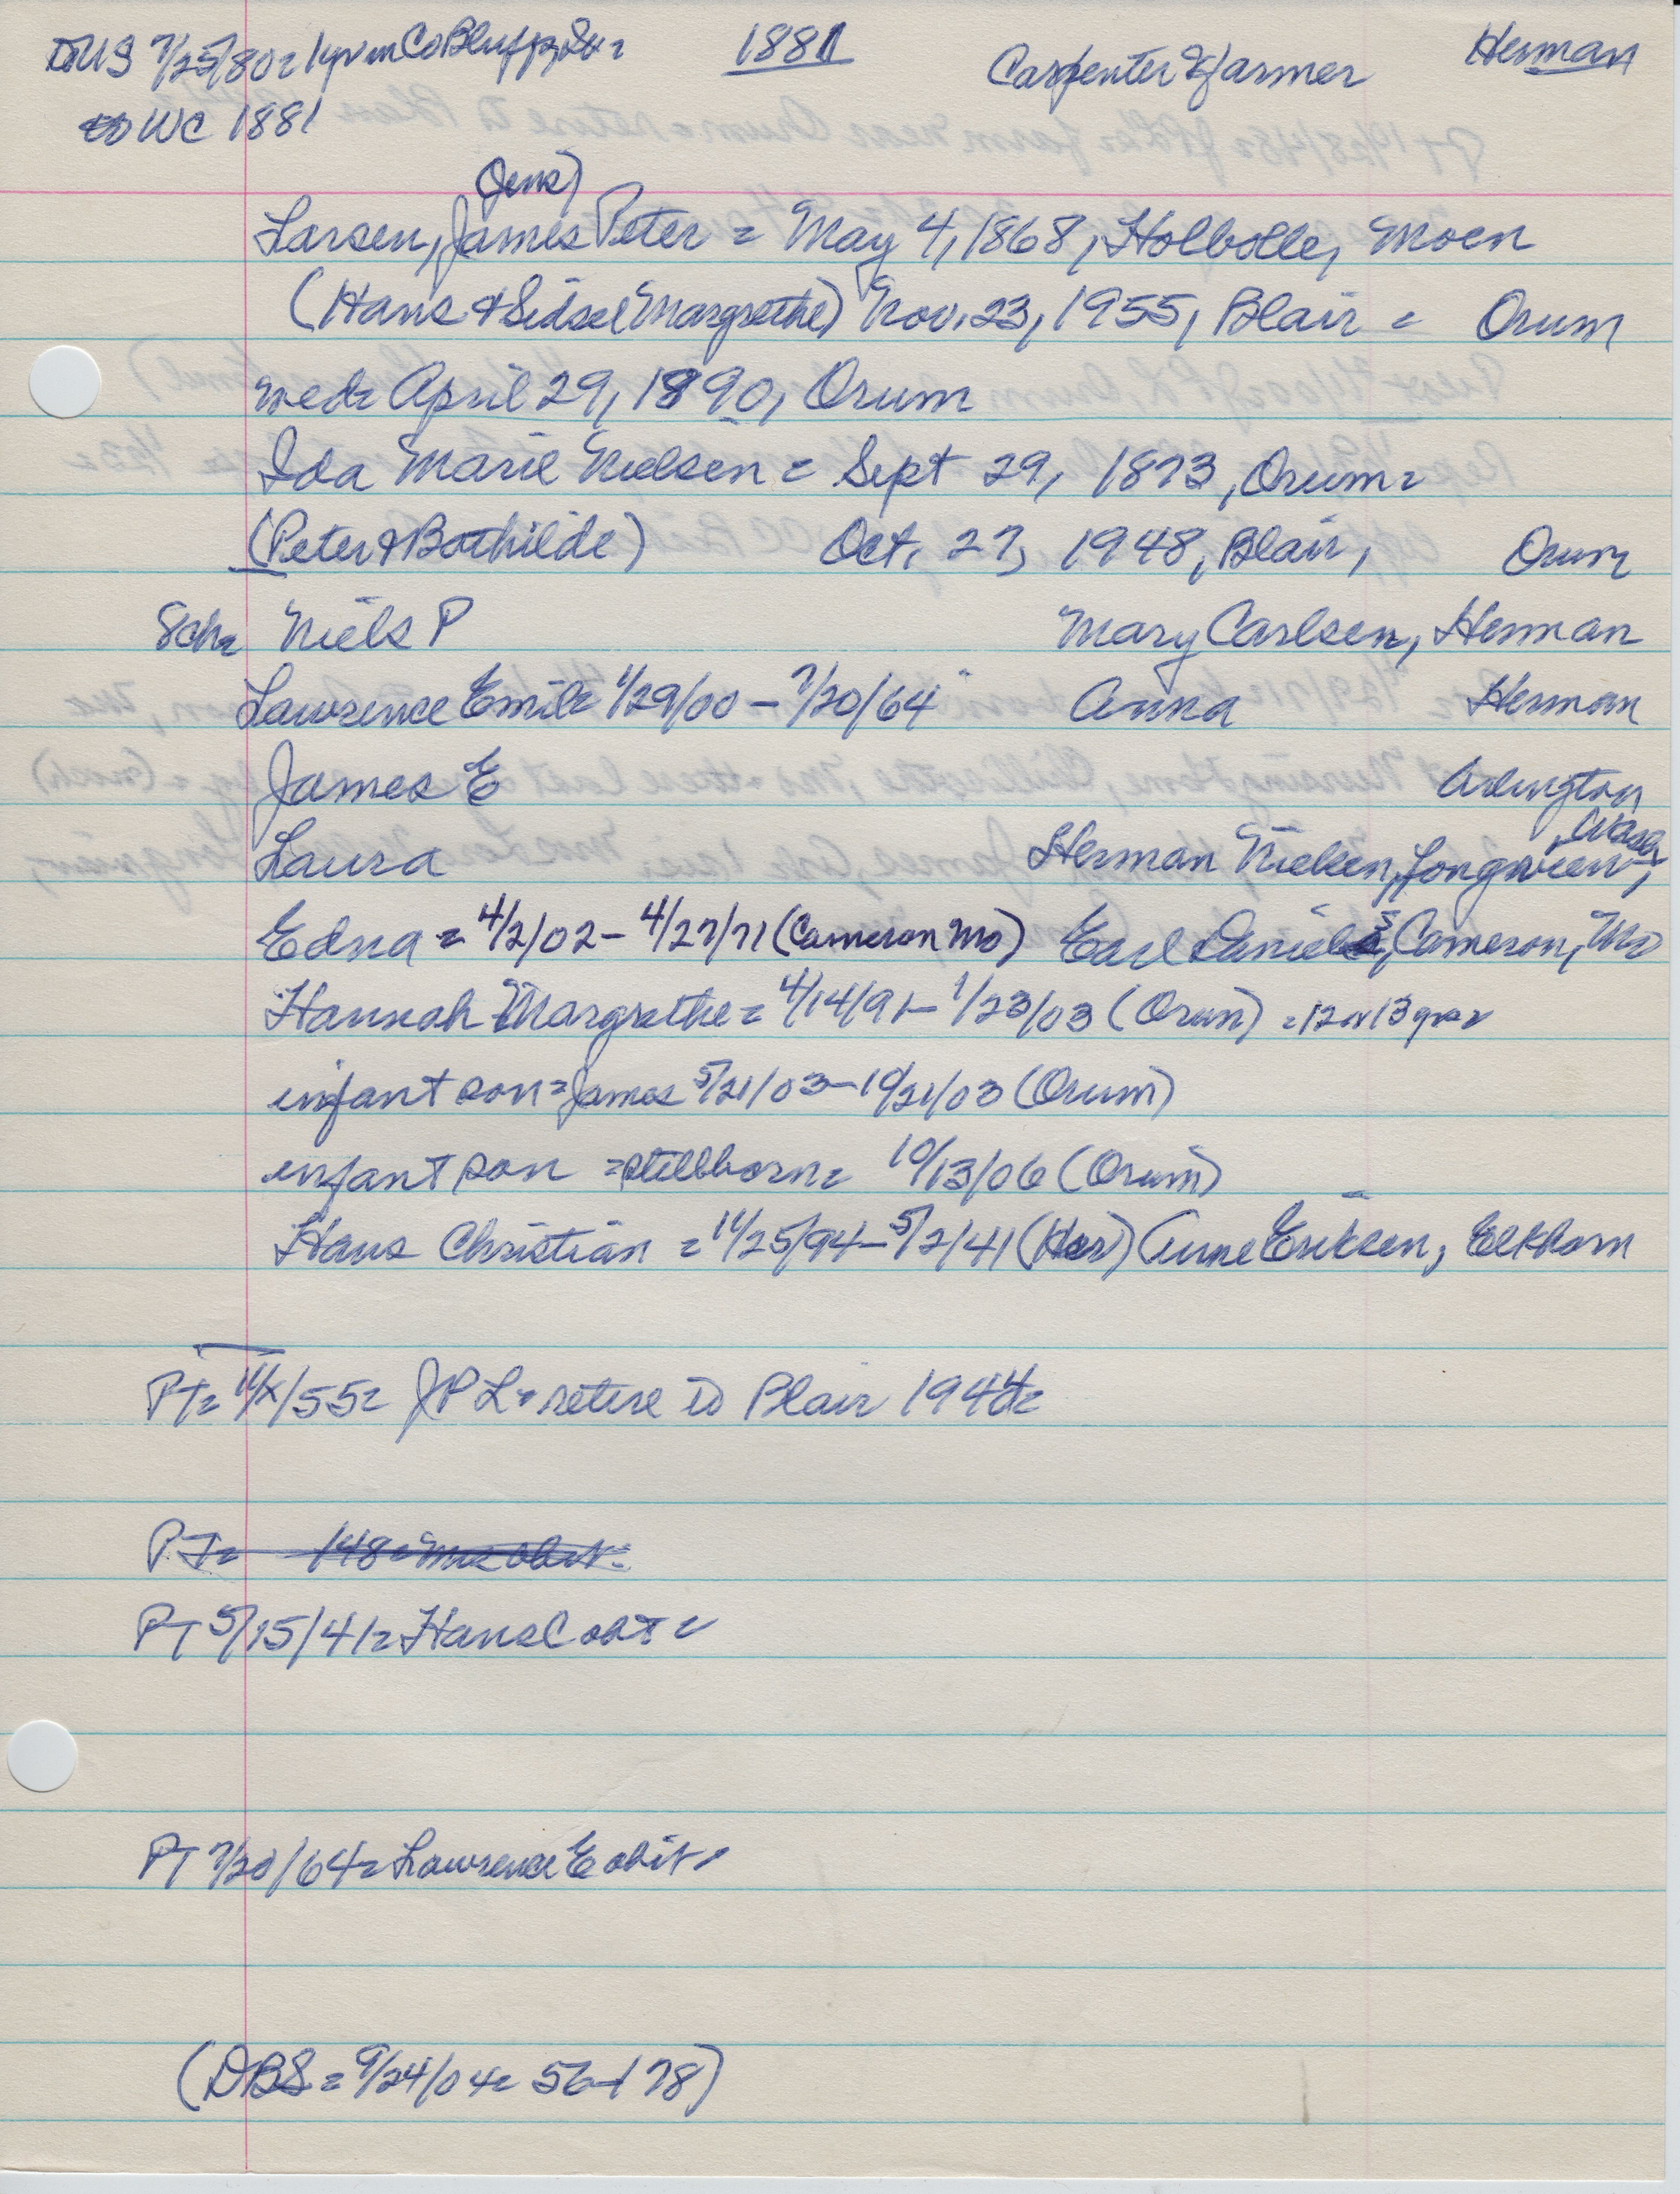 to US 7/25/80 = 1 yr in Co Bluffs, Ia = 1881 Carpenter & farmer Herman
to WC 1881
Jens)
Larsen, James Peter = May 4, 1868, Holbolle, Moen
(Hans & Sidsel Margrethe) Nov. 23, 1955, Blair = Orum
wed = April 29, 1890, Orum
Ida Marie Nielsen = Sept 29, 1873, Orum =
(Peter & Bothilde) Oct. 27, 1948, Blair, Orum
Sch = Niels P Mary Carlsen, Herman
Lawrence Emil = 1/29/00 - 7/20/64 Anna Herman
James E Arlington
Laura Herman Nielsen, Longview, Wash
Edna = 4/2/02 - 4/27/71 (Cameron Mo) Earl Daniels, Cameron, Mo
Hannah Margrethe = 4/14/91 - 1/23/03 (Orum) = 12 or 13 yr =
infant son = James 5/21/03 - 10/21/03 (Orum)
infant son = stillborn = 10/13/06 (Orum)
Hans Christian = 11/25/94 - 5/2/41 (Her) Anne Eriksen, Elkhorn
PT = 11/x/55 = JPL = retire to Blair 1944 =
PT = /48 = Mrs obit =
PT 5/15/41 = Hans C obit =
PT 7/20/64 = Lawrence E obit =
(DBS = 9/24/04 = 56-178)